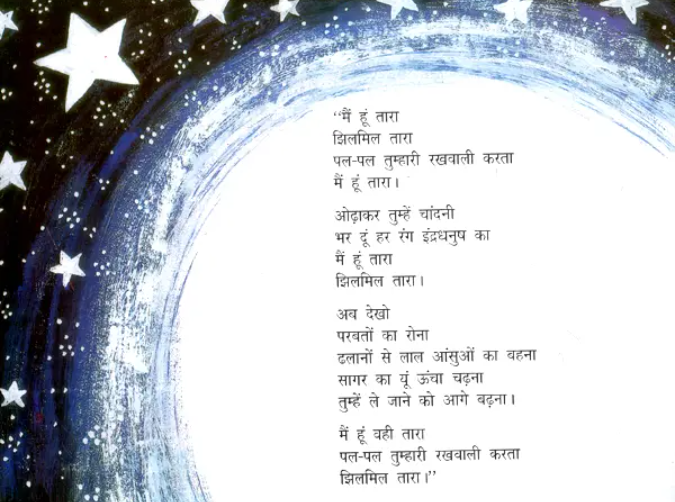 “मैं हूं तारा
झिलमिल तारा
पल-पल तुम्हारी रखवाली करता
मैं हूं तारा।
ओढ़ाकर तुम्हें चांदनी
भर दूं हर रंग इंद्रधनुष का
मैं हूं तारा
झिलमिल तारा।
अब देखो
परबतों का रोना
ढलानों से लाल आंसुओं का बहना
सागर का यूं ऊंचा चढ़ना
तुम्हें ले जाने को आगे बढ़ना।
मैं हूं वही तारा
पल-पल तुम्हारी रखवाली करता
झिलमिल तारा।”